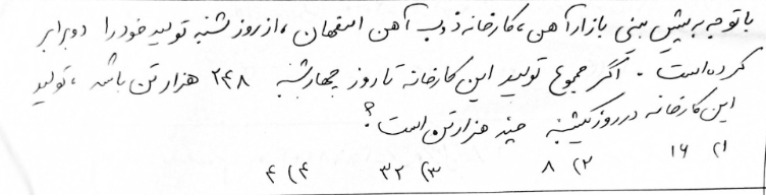 با توجه به پیش بینی بازار آهن ، کارخانه ذوب آهن اصفهان ، از روز شنبه تولید خود را دوبرابر
کرده است . اگر مجموع تولید این کارخانه تا روز چهارشنبه ۲۴۸ هزار تن باشد ، تولید
این کارخانه در روز یکشنبه چند هزار تن است ؟
۱) ۱۶ ۲) ۸ ۳) ۳۲ ۴) ۴